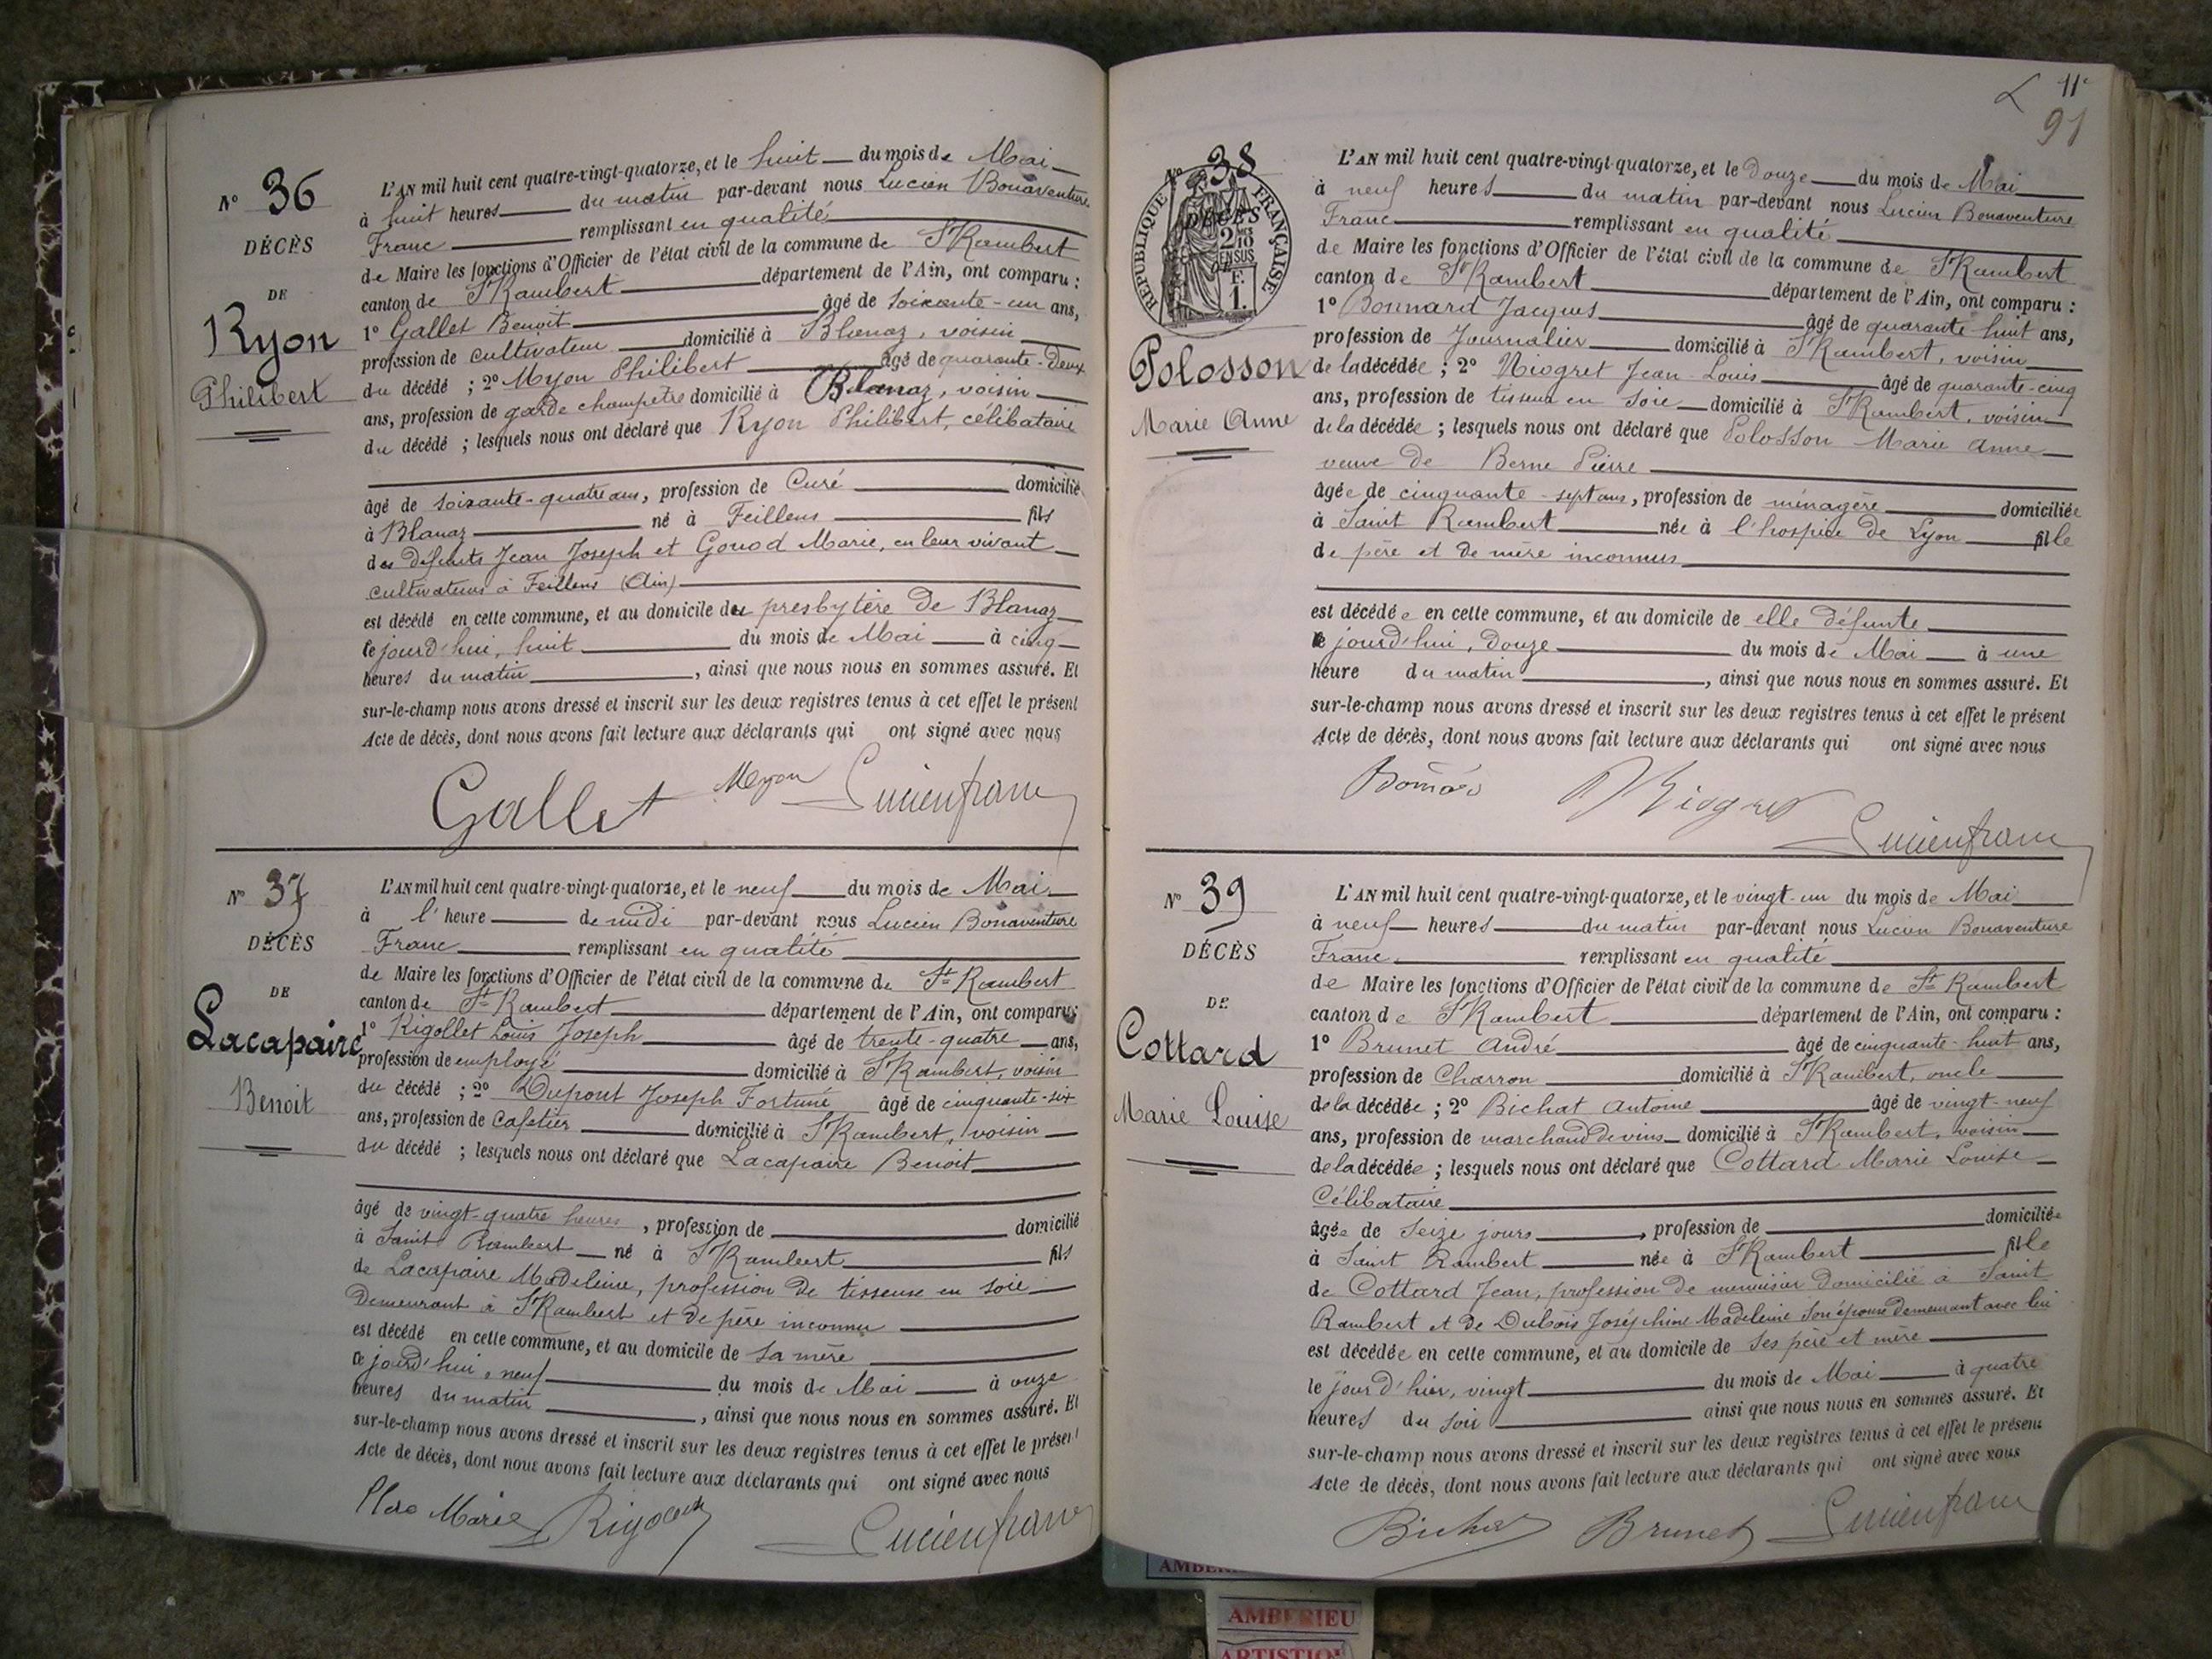 N° 36
DÉCÈS
DE
Ryon
Philibert
L'AN mil huit cent quatre-vingt-quatorze, et le huit du mois de Mai
à huit heures du matin par-devant nous Lucien Bonaventure
Franc remplissant en qualité
de Maire les fonctions d'Officier de l'état civil de la commune de St Rambert
canton de St Rambert département de l'Ain, ont comparu :
1° Gallet Benoît âgé de soixante-un ans,
profession de cultivateur domicilié à Blanaz, voisin
du décédé ; 2° Myon Philibert âgé de quarante-deux
ans, profession de garde champêtre domicilié à Blanaz, voisin
du décédé ; lesquels nous ont déclaré que Ryon Philibert, célibataire
âgé de soixante-quatre ans, profession de Curé domicilié
à Blanaz né à Feillens fils
des défunts Jean Joseph et Gonod Marie, en leur vivant
cultivateurs à Feillens (Ain)
est décédé en cette commune, et au domicile du presbytère de Blanaz
ce jourd'hui, huit du mois de Mai à cinq
heures du matin, ainsi que nous nous en sommes assuré. Et
sur-le-champ nous avons dressé et inscrit sur les deux registres tenus à cet effet le présent
Acte de décès, dont nous avons fait lecture aux déclarants qui ont signé avec nous
Gallet Myon Lucien franc
N° 37
DÉCÈS
DE
Lacapaire
Benoit
L'AN mil huit cent quatre-vingt-quatorze, et le neuf du mois de Mai
à l'heure de midi par-devant nous Lucien Bonaventure
Franc remplissant en qualité
de Maire les fonctions d'Officier de l'état civil de la commune de St Rambert
canton de St Rambert département de l'Ain, ont comparu :
1° Rigollet Louis Joseph âgé de trente-quatre ans,
profession de employé domicilié à St Rambert, voisin
du décédé ; 2° Dupont Joseph Fortuné âgé de cinquante-six
ans, profession de Cafetier domicilié à St Rambert, voisin
du décédé ; lesquels nous ont déclaré que Lacapaire Benoit
âgé de vingt-quatre heures, profession de domicilié
à Saint Rambert né à St Rambert fils
de Lacapaire Madeleine, profession de tisseuse en soie
demeurant à St Rambert et de père inconnu
est décédé en cette commune, et au domicile de sa mère
ce jourd'hui, neuf du mois de Mai à onze
heures du matin, ainsi que nous nous en sommes assuré. Et
sur-le-champ nous avons dressé et inscrit sur les deux registres tenus à cet effet le présent
Acte de décès, dont nous avons fait lecture aux déclarants qui ont signé avec nous
Marie Lucien franc
11e
91
N° 38
RÉPUBLIQUE FRANÇAISE
DÉCÈS
2/10 EN SUS
F. 1.
Polosson
Marie Anne
L'AN mil huit cent quatre-vingt-quatorze, et le douze du mois de Mai
à neuf heures du matin par-devant nous Lucien Bonaventure
Franc remplissant en qualité
de Maire les fonctions d'Officier de l'état civil de la commune de St Rambert
canton de St Rambert département de l'Ain, ont comparu :
1° Bonnard Jacques âgé de quarante huit ans,
profession de Journalier domicilié à St Rambert, voisin
de la décédée ; 2° Niogret Jean-Louis âgé de quarante-cinq
ans, profession de tisseur en soie domicilié à St Rambert, voisin
de la décédée ; lesquels nous ont déclaré que Polosson Marie Anne
veuve de Berne Pierre
âgée de cinquante-sept ans, profession de ménagère domiciliée
à Saint Rambert née à l'hospice de Lyon fille
de père et de mère inconnus
est décédée en cette commune, et au domicile de elle défunte
ce jourd'hui, douze du mois de Mai à une
heure du matin, ainsi que nous nous en sommes assuré. Et
sur-le-champ nous avons dressé et inscrit sur les deux registres tenus à cet effet le présent
Acte de décès, dont nous avons fait lecture aux déclarants qui ont signé avec nous
Niogret
Lucien franc
N° 39
DÉCÈS
DE
Cottard
Marie Louise
L'AN mil huit cent quatre-vingt-quatorze, et le vingt-un du mois de Mai
à neuf heures du matin par-devant nous Lucien Bonaventure
Franc remplissant en qualité
de Maire les fonctions d'Officier de l'état civil de la commune de St Rambert
canton de St Rambert département de l'Ain, ont comparu :
1° Brunet André âgé de cinquante-huit ans,
profession de Charron domicilié à St Rambert, oncle
de la décédée ; 2° Bichat Antoine âgé de vingt-neuf
ans, profession de marchand de vins domicilié à St Rambert, voisin
de la décédée ; lesquels nous ont déclaré que Cottard Marie Louise
Célibataire
âgée de seize jours, profession de domiciliée
à Saint Rambert née à St Rambert fille
de Cottard Jean, profession de menuisier domicilié à Saint
Rambert et de Dubois Joséphine Madeleine son épouse demeurant avec lui
est décédée en cette commune, et au domicile de ses père et mère
le jour d'hier, vingt du mois de Mai à quatre
heures du soir ainsi que nous nous en sommes assuré. Et
sur-le-champ nous avons dressé et inscrit sur les deux registres tenus à cet effet le présent
Acte de décès, dont nous avons fait lecture aux déclarants qui ont signé avec nous
Bichat Brunet Lucien franc
AMBERIEU